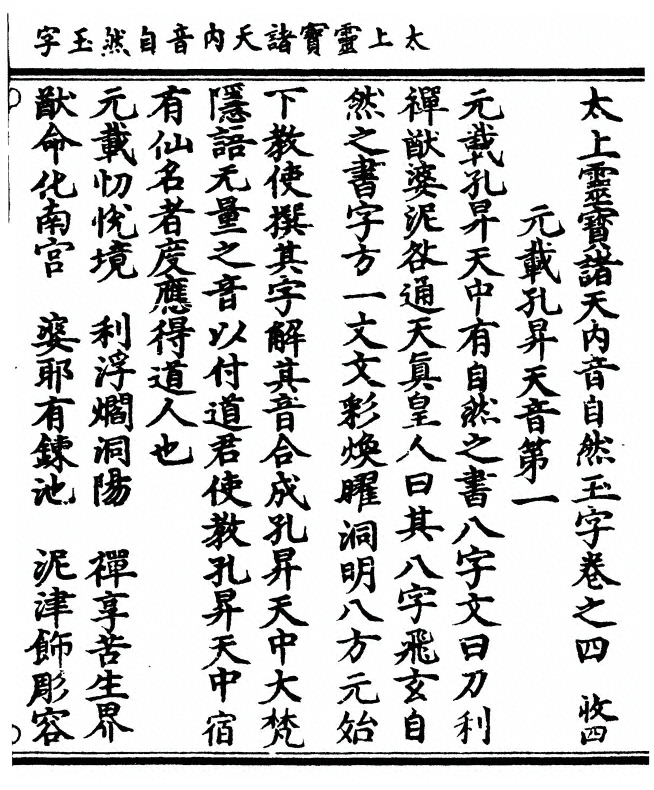 太上靈寶諸天內音自然玉字
太上靈寶諸天內音自然玉字卷之四 收四
元載孔昇天音第一
元載孔昇天中有自然之書八字文曰刀利
禪猷婆泥咎通天真皇人曰其八字飛玄自
然之書字方一丈文彩煥曜洞明八方元始
下教使撰其字解其音合成孔昇天中大梵
隱語无量之音以付道君使教孔昇天中宿
有仙名者度應得道人也
元載忉悅境 利浮爓洞陽 禪享苦生界
猷命化南宮 婆耶有鍊池 泥津飾彫容